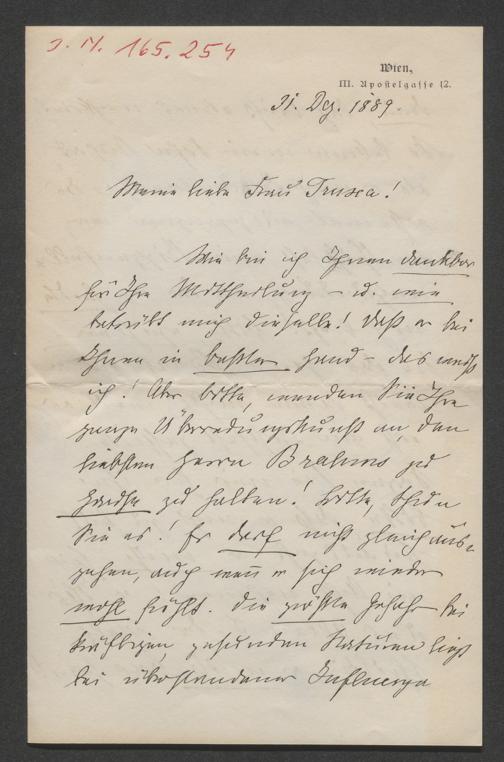 J. N. 165.254
Wien,
III. Apostelgasse 12.
31. Dez. 1889.
Meine liebe Frau Truxa!
Wie bin ich Ihnen dankbar
für Ihre Mittheilung – u. wie
betrübt mich dieselbe! Daß er bei
Ihnen in bester Hand – das weiß
ich! Aber bitte, wenden Sie Ihre
ganze Überredungskunst an, den
liebsten Herrn Brahms zu
Hause zu halten! Bitte, thun
Sie es! Er darf nicht gleich aus-
gehen, auch wenn er sich wieder
wohl fühlt. Die größte Gefahr bei
kräftigen gesunden Naturen liegt
bei überstandener Influenza